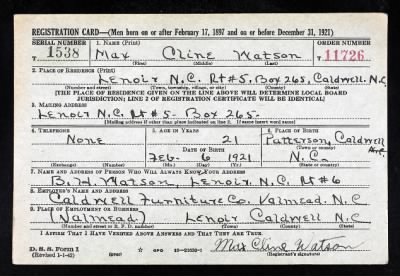 REGISTRATION CARD—(Men born on or after February 17, 1897 and on or before December 31, 1921)
SERIAL NUMBER 1. NAME (Print) ORDER NUMBER
1538 Max Cline Watson T 11726
(First) (Middle) (Last)
2. PLACE OF RESIDENCE (Print)
Lenoir N.C. Rt #5, Box 265, Caldwell, N.C.
(Number and street) (Town, township, village, or city) (County) (State)
[THE PLACE OF RESIDENCE GIVEN ON THE LINE ABOVE WILL DETERMINE LOCAL BOARD
JURISDICTION; LINE 2 OF REGISTRATION CERTIFICATE WILL BE IDENTICAL]
3. MAILING ADDRESS
Lenoir N.C. Rt #5- Box 265-
[Mailing address if other than place indicated on line 2. If same insert word same]
4. TELEPHONE 5. AGE IN YEARS 6. PLACE OF BIRTH
None 21 Patterson, Caldwell
(Town or county)
DATE OF BIRTH
Feb- 6 1921 N.C.
(Exchange) (Number) (Mo.) (Day) (Yr.) (State or country)
7. NAME AND ADDRESS OF PERSON WHO WILL ALWAYS KNOW YOUR ADDRESS
Watson, Lenoir, N.C. Rt #6
8. EMPLOYER'S NAME AND ADDRESS
Caldwell Furniture Co. Valmead, N.C.
9. PLACE OF EMPLOYMENT OR BUSINESS
(Valmead) Lenoir Caldwell N.C
(Number and street or R. F. D. number) (Town) (County) (State)
I AFFIRM THAT I HAVE VERIFIED ABOVE ANSWERS AND THAT THEY ARE TRUE.
D. S. S. Form 1
(Revised 1-1-42) GPO Max Cline Watson
(Registrant's signature)